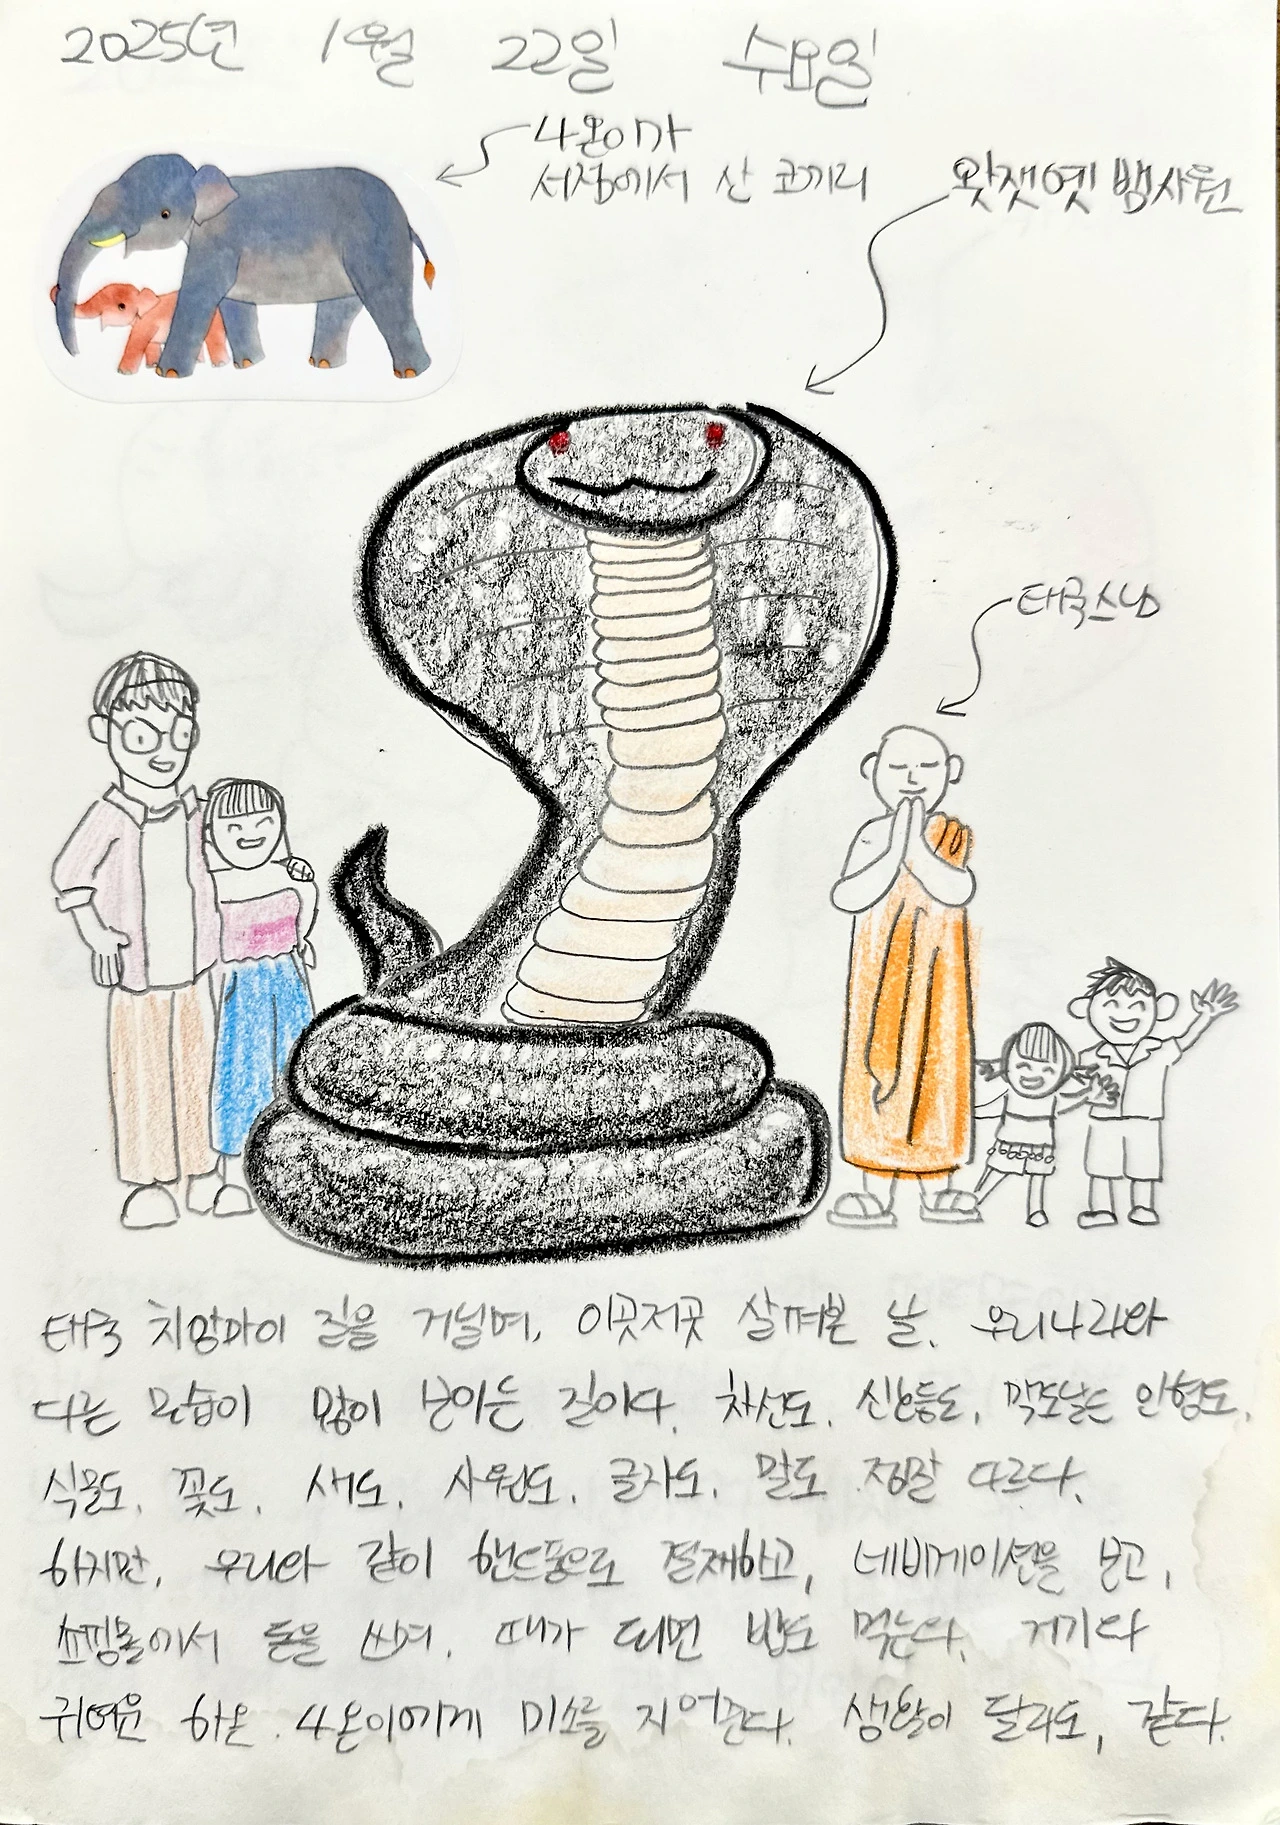 2025년 1월 22일 수요일
4온이가
서점에서 산 코끼리
왓쨋옛 뱀사원
태국스님
태국 치앙마이 길을 거닐며, 이곳저곳 살펴본 날. 우리나라와
다른 모습이 많이 보이는 길이다. 차선도, 신호등도, 맥도날드 인형도,
식물도, 꽃도, 새도, 사원도, 글자도, 말도 정말 다르다.
하지만, 우리와 같이 핸드폰으로 결재하고, 네비게이션을 보고,
쇼핑몰에서 돈을 쓰며, 때가 되면 밥도 먹는다. 거기다
귀여운 하온. 4온이에게 미소를 지어준다. 생활이 달라도, 같다.